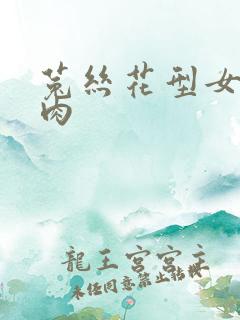 菟絲花型女
肉
龍王宮宮主
未經同意禁止轉載